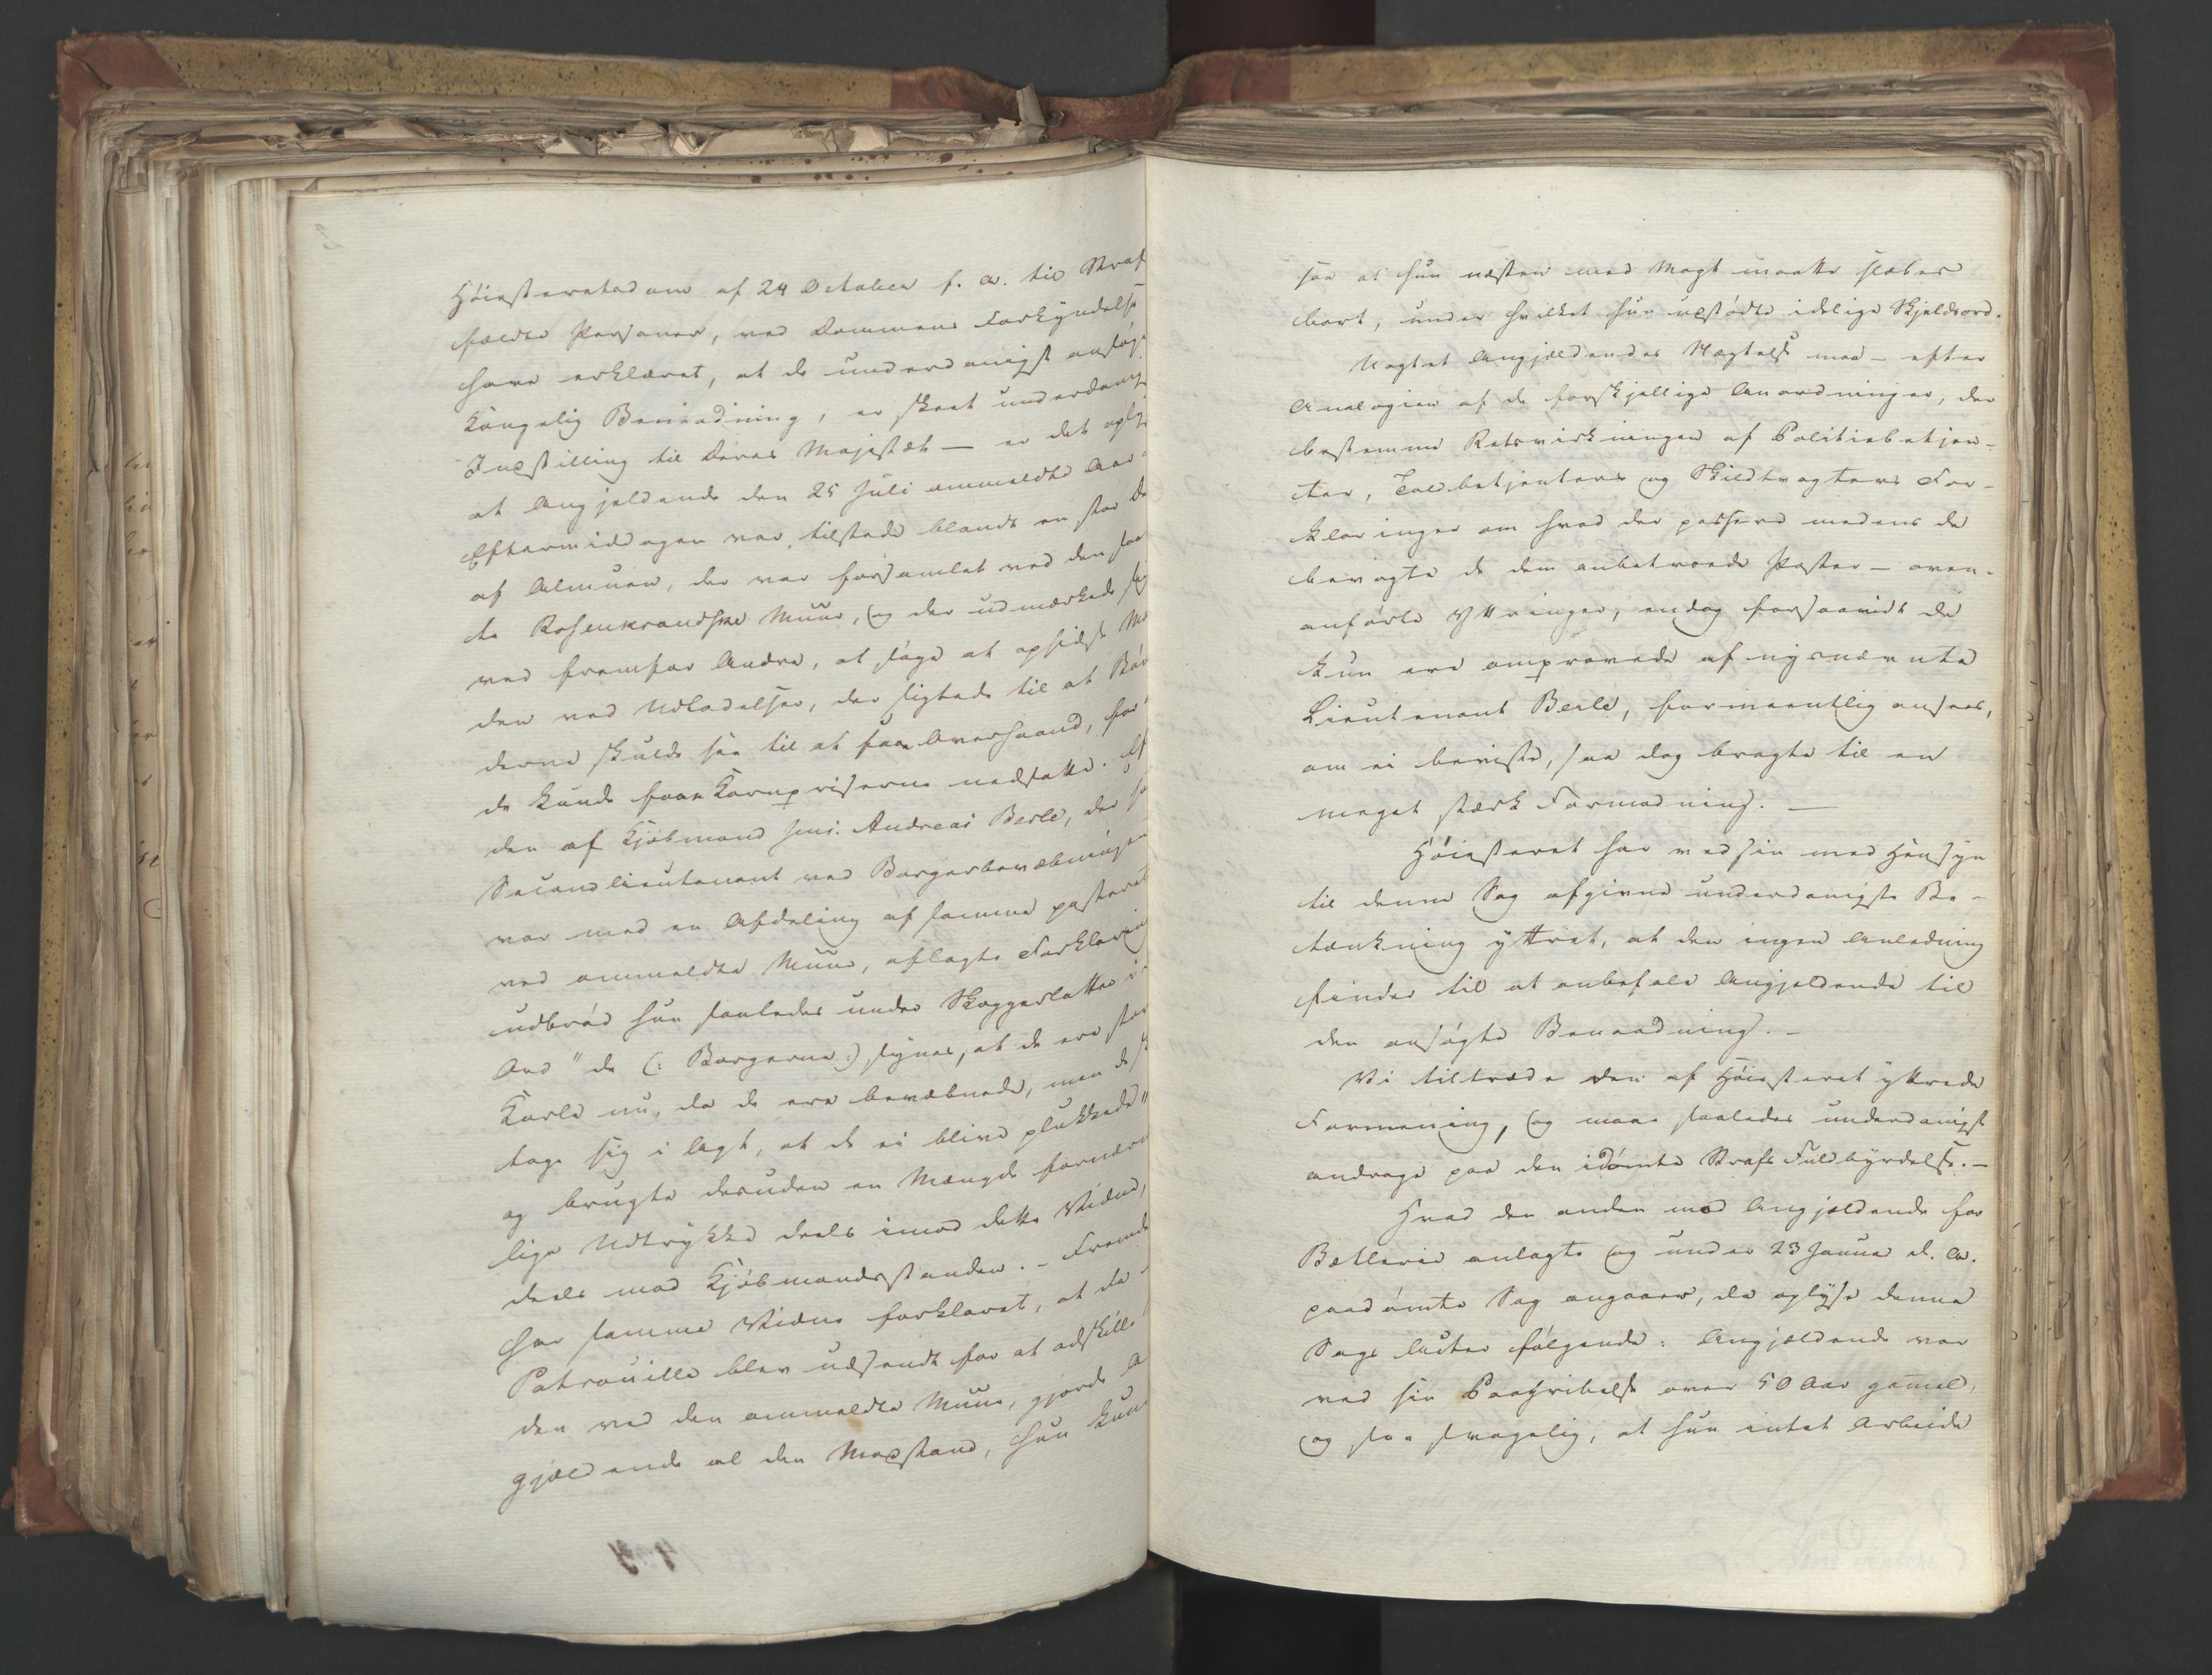 Høiesteretsdom af 24 October f. A. til Straf
fældte Personer, ved Dommens Forkyndelse
have erklæret, at de underdanigst ansøge
Kongelig Benaadning, er skeet underdanig
Indstilling til Deres Majestæt — er det oplyst
at Angjeldende den 25 Juli ommeldte Aar
Eftermiddagen var tilstede blandt en stor De
af Almuen, der var forsamlet ved den saa
te Rosenkrandske Muur, og der udmærkede sig
ved fremfor Andre, at søge at ophidse Mæ
den ved Udladelser, der sigtede til at Bøn
derne skulde see til at faae Overhaand, for
de kunde faae Kornpriserne nedsatte. Ef
den af Kjøbmand Jens Andreas Beile, der so
Secondlieutenant ved Borgerbevæbningen
var med en Afdeling af samme posteret
ved ommeldte Muur, aflagte Forklaring
udbrød hun saaledes under Skoggerlatter i
Ord "de (: Borgerne :) synes, at de ere stor
Karle nu, da de ere bevæbnede, men de sk
tage sig i Agt, at de ei blive plukkede"
og brugte desuden en Mængde fornær
lige Udtrykke deels imod dette Vidne,
deels mod Kjøbmandsstanden. - Fremde
har samme Vidne forklaret, at da
Patrouille blev udsendt for at adskille
den ved den ommeldte Muur, gjorde A
gjældende al den Modstand, hun kun
saa at hun næsten med Magt maatte slæbes
bort, under hvilket hun udstødte idelige Skjeldsord.
Uagtet Angjældendes Nægtelse maa - efter
Analogien af de forskjellige Anordninger, der
bestemme Retsvirkningen af Politiebetjen-
ters, Toldbetjenters og Skildvagters For-
klaringer om hvad der passerer medens de
bevogte de dem anbetroede Poster - oven-
anførte Yttringer, endog forsaavidt de
kun ere omprovede af nysnævnte
Lieutenant Beile, formeentlig ansees,
om ei beviste, saa dog bragte til en
meget stærk Formodning. —
Høiesteret har ved sin med Hensyn
til denne Sag afgivne underdanigste Be-
tænkning yttret, at den ingen Anledning
finder til at anbefale Angjeldende til
den ansøgte Benaadning. -
Vi tiltræde den af Høiesteret yttrede
Formening, og maae saaledes underdanigst
andrage paa den idømte Strafs Fuldbyrdelse. -
Hvad den anden mod Angjældende for
Betlerie anlagte og under 23 Januar d. A.
paadømte Sag angaaer, da oplyse denne
Sags Acter følgende: Angjældende var
ved sin Paagribelse over 50 Aar gammel,
og saa svagelig, at hun intet Arbeide